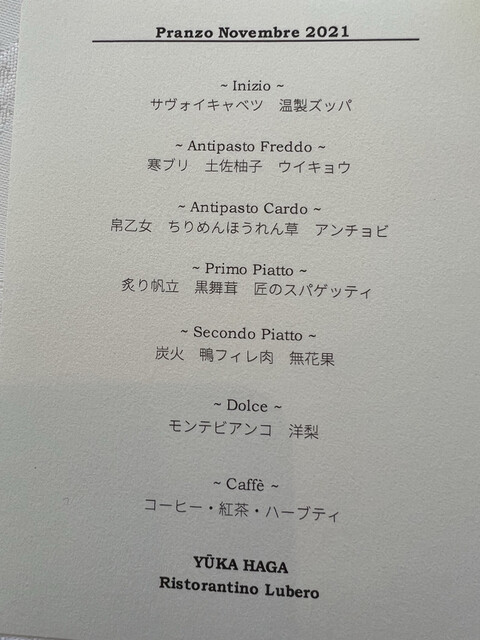 Pranzo Novembre 2021
~ Inizio ~
サヴォイキャベツ　温製ズッパ
~ Antipasto Freddo ~
寒ブリ　土佐柚子　ウイキョウ
~ Antipasto Cardo ~
帛乙女　ちりめんほうれん草　アンチョビ
~ Primo Piatto ~
炙り帆立　黒舞茸　匠のスパゲッティ
~ Secondo Piatto ~
炭火　鴨フィレ肉　無花果
~ Dolce ~
モンテビアンコ　洋梨
~ Caffè ~
コーヒー・紅茶・ハーブティ
YŪKA HAGA
Ristorantino Lubero